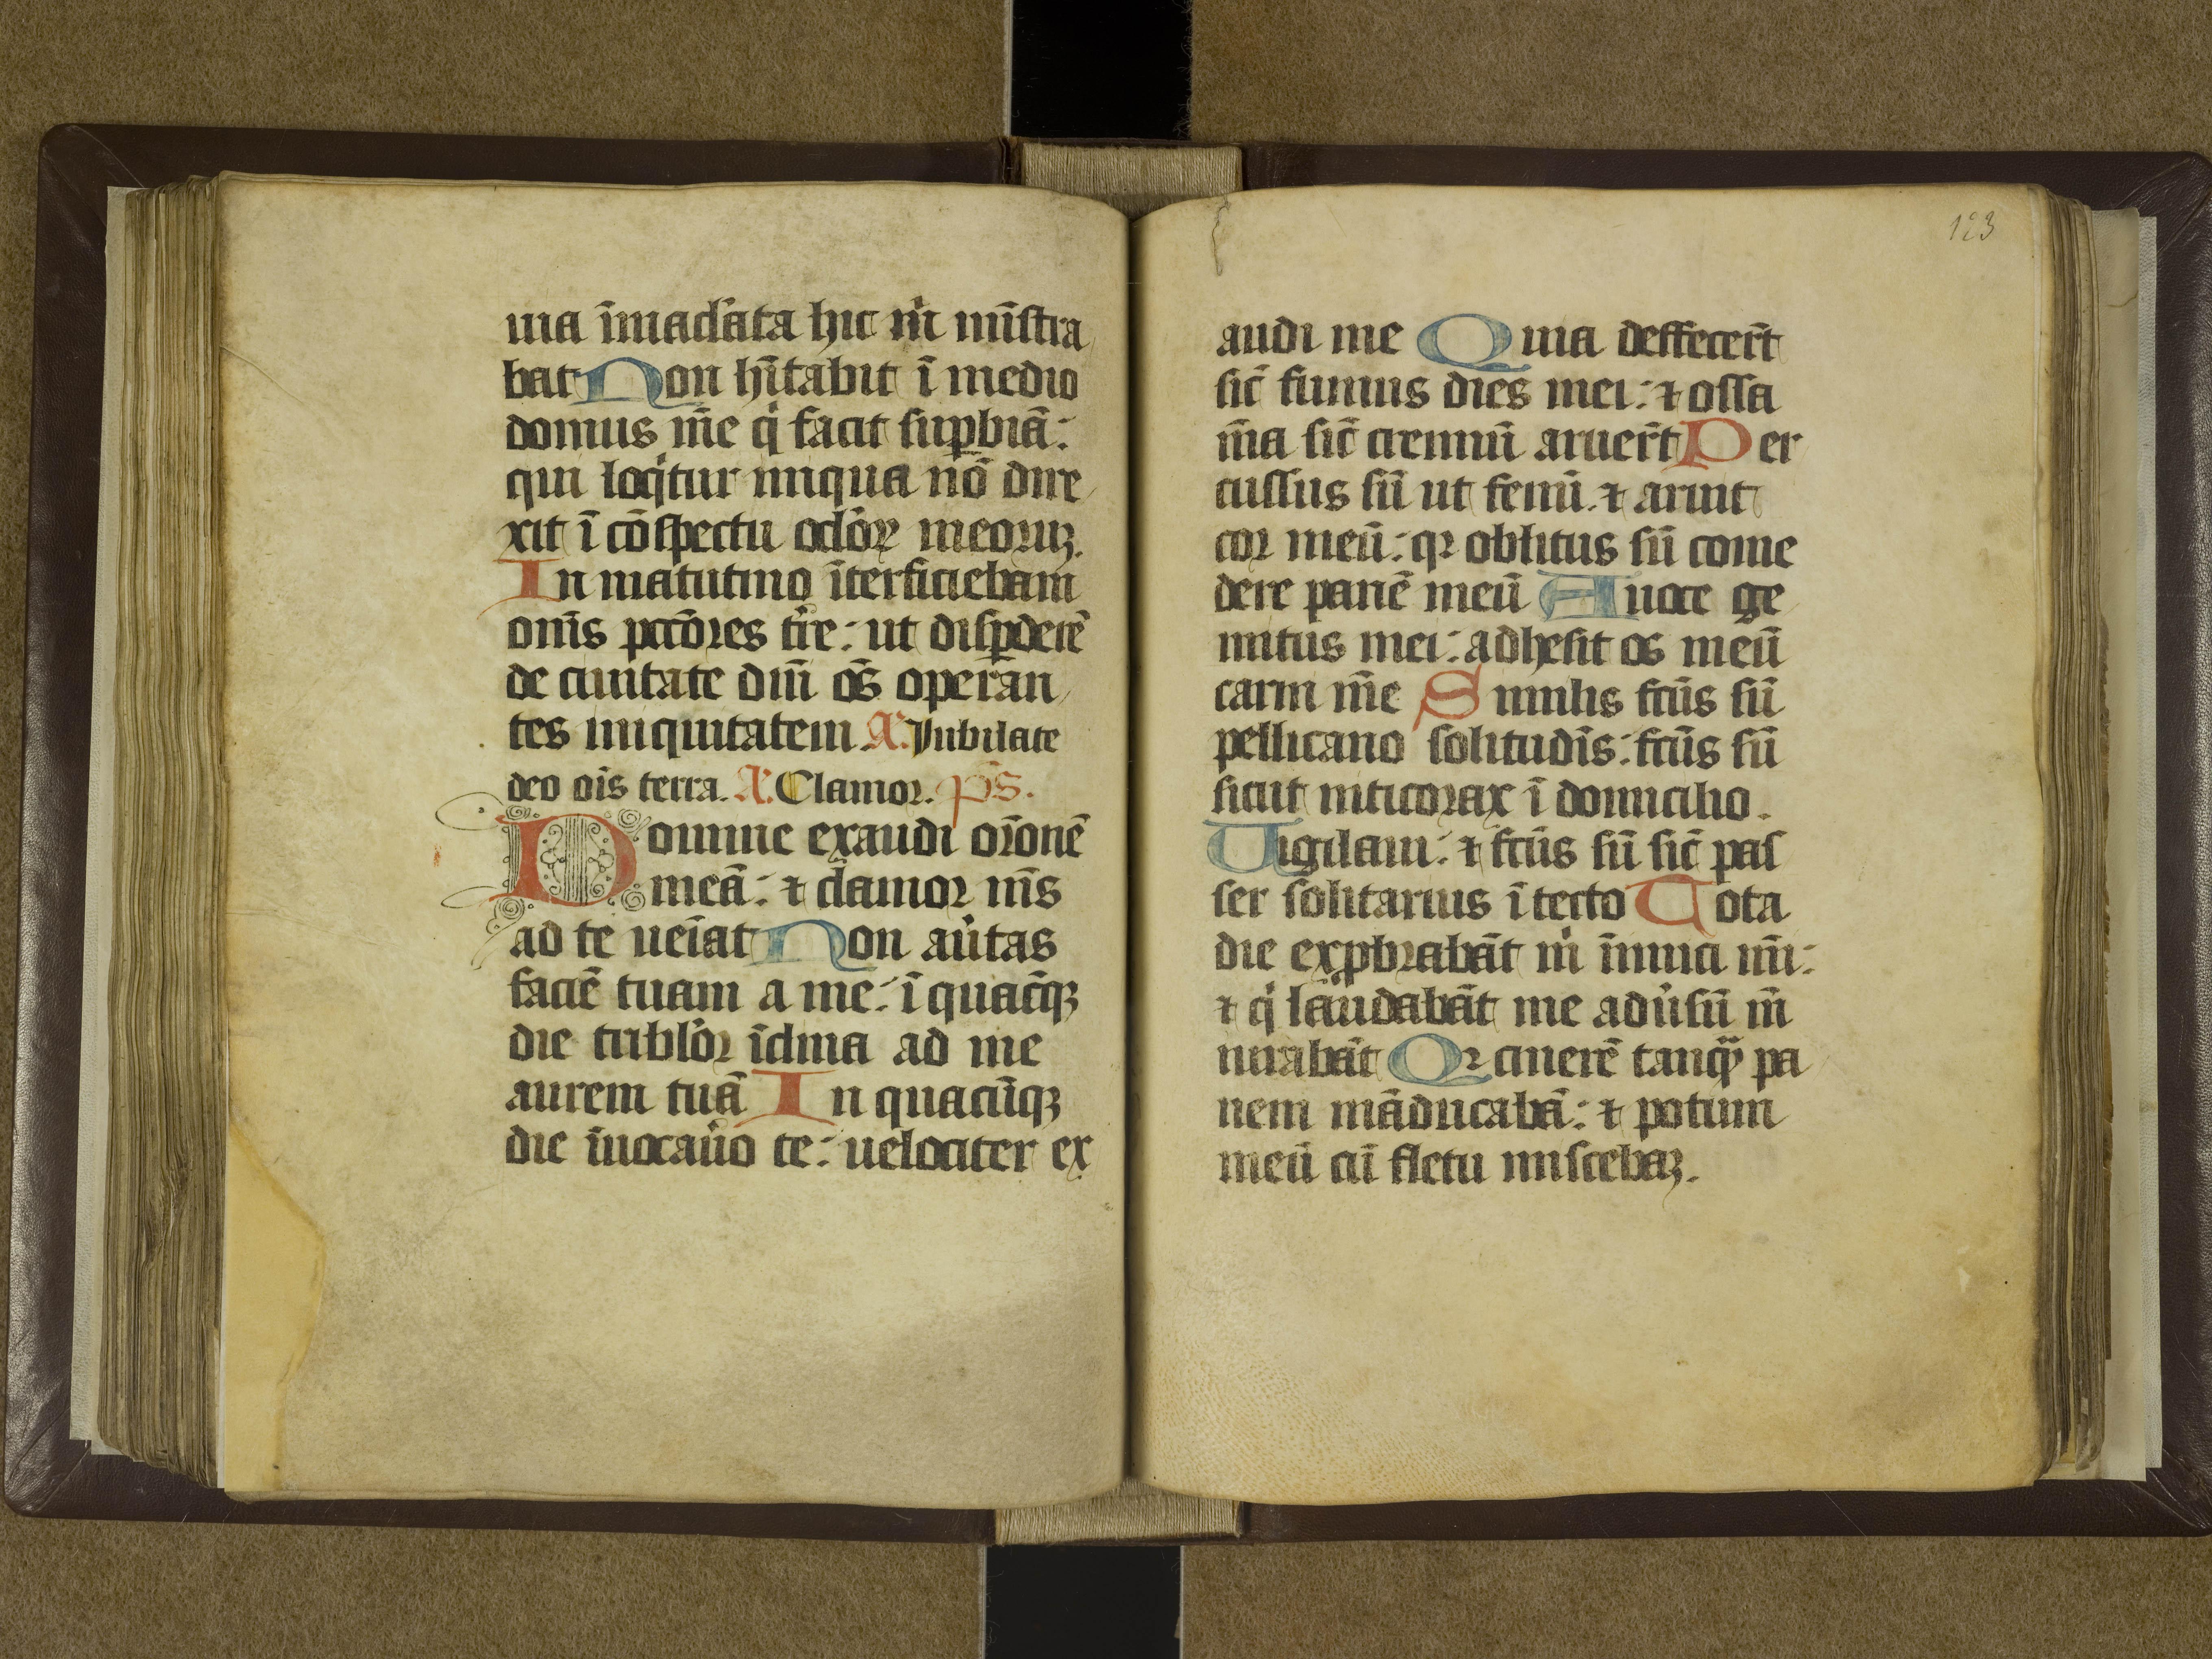 uia ĩmac̃lata hic m̃ mĩstra
bat Non hĩtabit ĩ medio
domus m̃e qⁱ facit sup̱biã:
qui loqⁱtur iniqua nõ dire
xit ĩ cõspectu oc̃loꝝ meoruʒ.
In matutino ĩterficiebam
om̃s pcc̃ores tr̃e: ut disp̱derẽ
de ciuitate dñi oẽs operan
tes iniquitatem A͂. Jubilate
deo oĩs terra. A͂. Clamor. p̃s.
Domine exaudi or̃onẽ
meã: ⁊ clamor m̃s
ad te ueĩat Non au̾tas
faciẽ tuam a me: ĩ quac̃qʒ
die tⁱblor ĩclina ad me
aurem tuã In quacũqʒ
die ĩuocau̾o te: uelociter ex
123
audi me Quia deffecer̃t
sic̃ fumus dies mei: ⁊ ossa
m̃a sic̃ cremiũ aruer̃t Per
cussus sũ ut fenũ. ⁊ aruit
cor meũ: qꝛ oblitus sũ come
dere panẽ meũ A uoce ge
mitus mei: adhesit os meũ
carni m̃e Similis fc̃us sũ
pellicano solitudĩs: fc̃us sũ
sicut niticorax ĩ domicilio.
Uigilaui: ⁊ fc̃us sũ sic̃ pas
ser solitarius ĩ tecto Tota
die exp̱brabãt mⁱ ĩimici m̃i:
⁊ qⁱ laudabãt me adu̾sũ m̃
iurabãt Qꝛ cinerẽ tanqᷓ pa
nem mãducabã: ⁊ potum
meũ cũ fletu miscebaʒ.